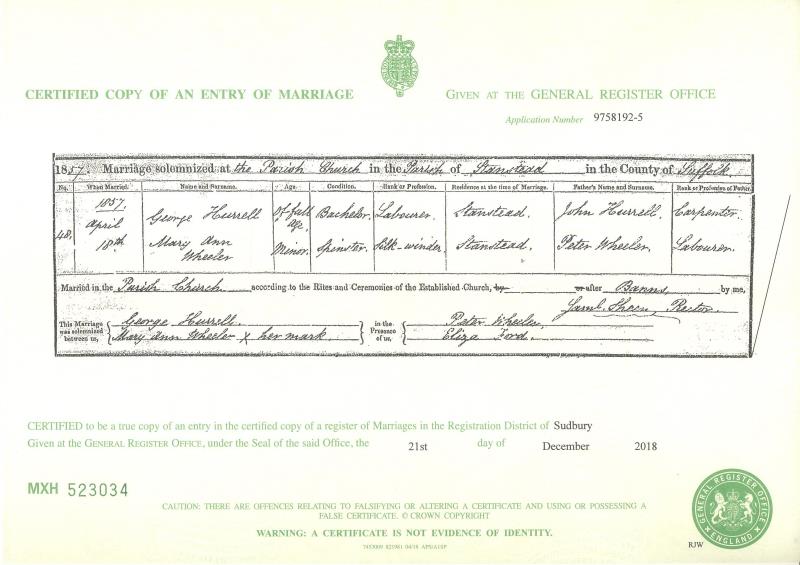 CERTIFIED COPY OF AN ENTRY OF MARRIAGE
GIVEN AT THE GENERAL REGISTER OFFICE
Application Number 9758192-5
1857. Marriage solemnized at the Parish Church in the Parish of Stanstead in the County of Suffolk
No. When Married. Name and Surname. Age. Condition. Rank or Profession. Residence at the time of Marriage. Father's Name and Surname. Rank or Profession of Father.
48. 1857. April 18th
George Hurrell Of full age. Bachelor Labourer. Stanstead. John Hurrell. Carpenter.
Mary Ann Wheeler Minor. Spinster. Silk-winder. Stanstead. Peter Wheeler. Labourer.
Married in the Parish Church according to the Rites and Ceremonies of the Established Church, by or after Banns, by me,
Sheen, Rector.
This Marriage was solemnized between us, George Hurrell. Mary Ann Wheeler x her mark.
in the Presence of us, Peter Wheeler. Eliza Ford.
CERTIFIED to be a true copy of an entry in the certified copy of a register of Marriages in the Registration District of Sudbury
Given at the GENERAL REGISTER OFFICE, under the Seal of the said Office, the 21st day of December 2018
MXH 523034
CAUTION: THERE ARE OFFENCES RELATING TO FALSIFYING OR ALTERING A CERTIFICATE AND USING OR POSSESSING A
FALSE CERTIFICATE. © CROWN COPYRIGHT
WARNING: A CERTIFICATE IS NOT EVIDENCE OF IDENTITY.
GENERAL REGISTER OFFICE
ENGLAND
RJW